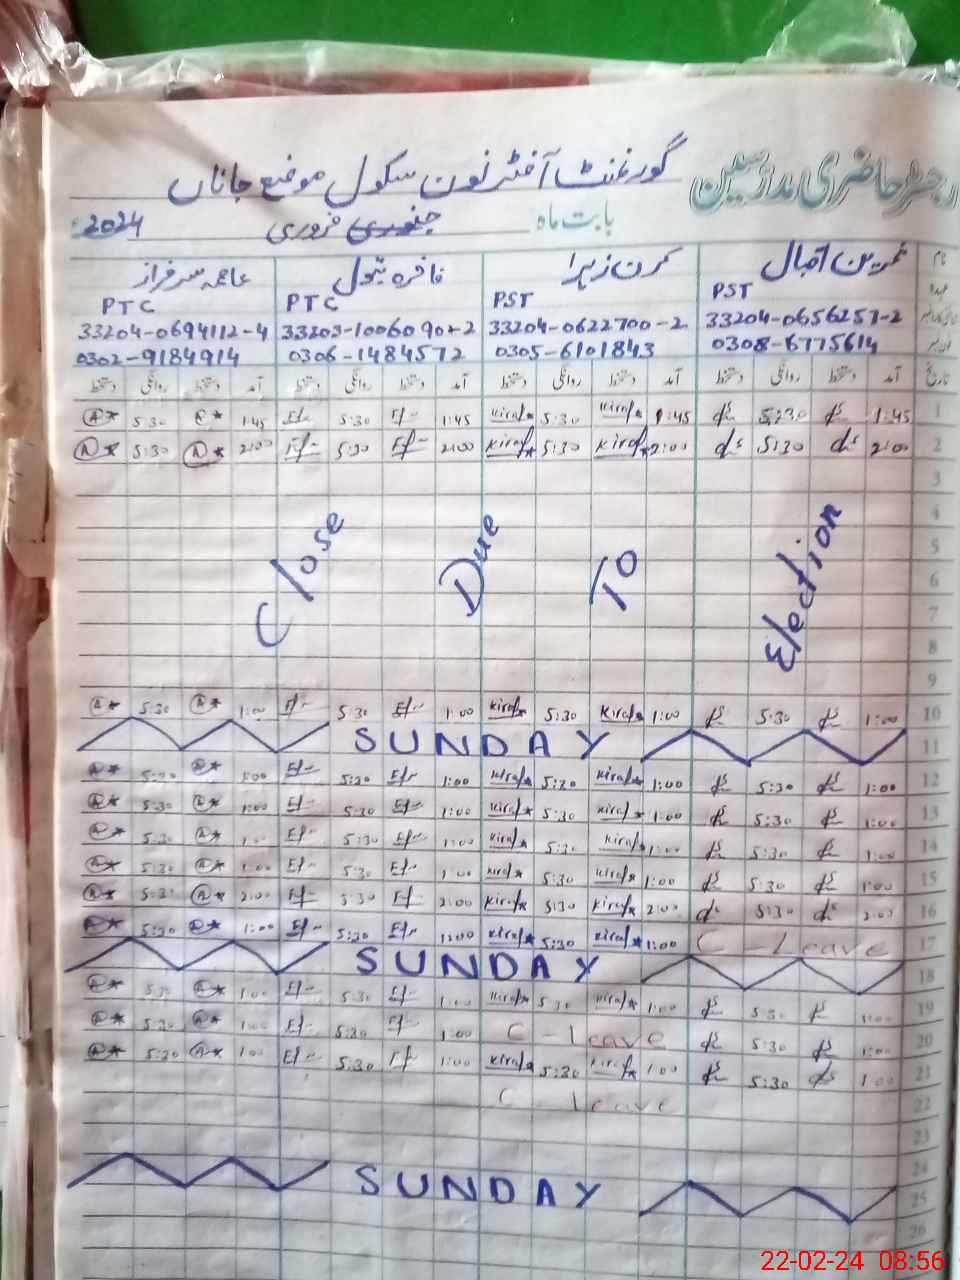 رجسٹر حاضری مدرسین گورنمنٹ آفٹر نون سکول موضع جاناں
بابت ماہ جنوری فروری 2024
نام ثمرین اقبال کرن زہرا فاخرہ بتول عاصمہ سرفراز
عہدہ PST PST PTC PTC
33204-0656257-2 33204-0622700-2 33203-1006090-2 33204-0694112-4
0308-6775614 0305-6101843 0306-1484572 0302-9184914
تاریخ آمد دستخط روانگی دستخط آمد دستخط روانگی دستخط آمد دستخط روانگی دستخط آمد دستخط روانگی دستخط
1 1:45 5:30 1:45 Kiran 5:30 Kiran 1:45 5:30 1:45 5:30
2 2:00 5:30 2:00 Kiran 5:30 Kiran 2:00 5:30 2:00 5:30
3
4
5
6
7
8
9
Close Due To Election
10 1:00 5:30 1:00 Kiran 5:30 Kiran 1:00 5:30 1:00 5:30
11 SUNDAY
12 1:00 5:30 1:00 Kiran 5:30 Kiran 1:00 5:30
13 1:00 5:30 1:00 Kiran 5:30 Kiran 1:00 5:30 1:00 5:30
14 1:00 5:30 1:00 Kiran 5:30 Kiran 1:00 5:30 5:30
15 1:00 5:30 1:00 Kiran 5:30 Kiran 1:00 5:30 1:00 5:30
16 2:00 5:30 2:00 Kiran 5:30 Kiran 2:00 5:30 2:00 5:30
17 C - Leave 1:00 Kiran 5:30 Kiran 1:00 5:30 1:00 5:30
18 SUNDAY
19 1:00 5:30 1:00 Kiran 5:30 Kiran 1:00 5:30 1:00 5:30
20 1:00 5:30 C - leave 1:00 5:30 1:00 5:30
21 1:00 5:30 1:00 Kiran 5:30 Kiran 1:00 5:30 1:00 5:30
22 C - leave
23
24
25 SUNDAY
26
22-02-24 08:56